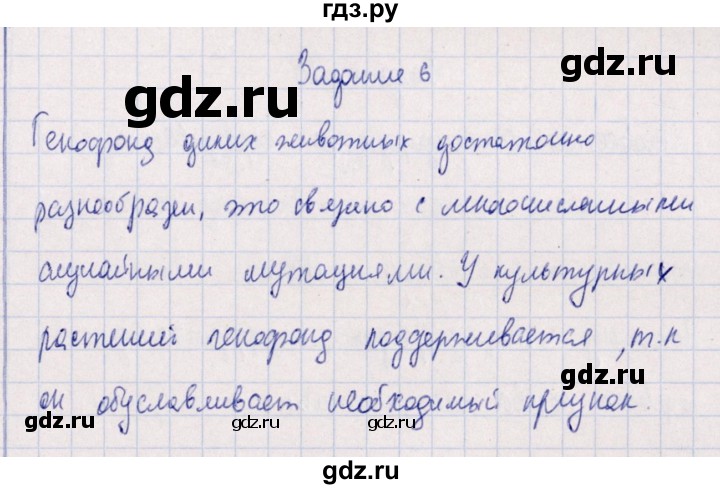 гдз.ру
Задание 6
gdz.ru gdz.ru
Генофонд диких животных достаточно
разнообразен, это связано с многочисленными
случайными мутациями. У культурных
растений генофонд поддерживается, т.к
gdz.ru
он обуславливает необходимый признак.
gdz.ru gdz.ru
gdz.ru